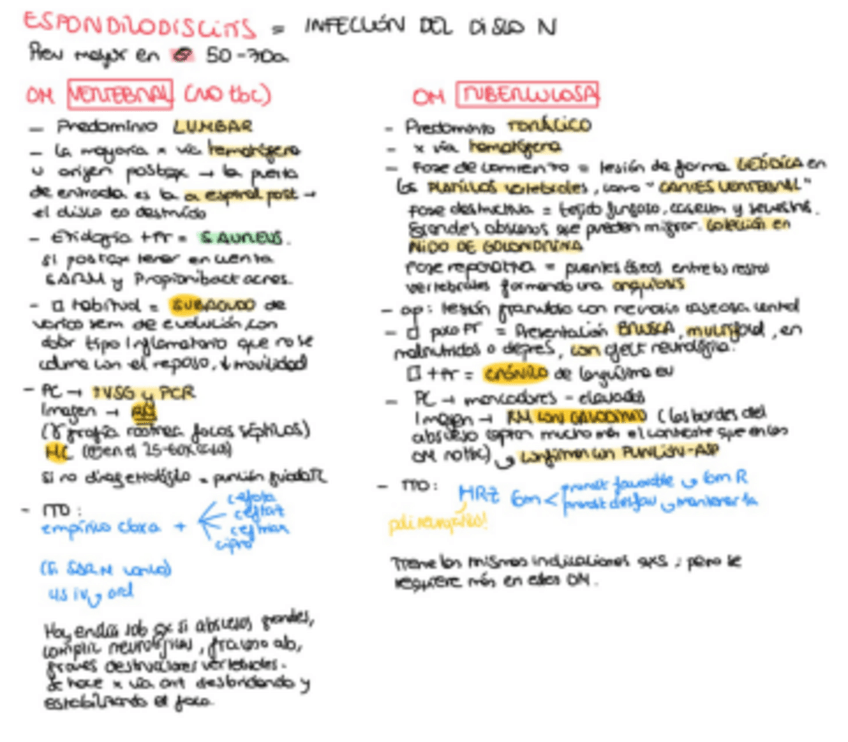 ESPONDILODISCITIS = INFECCIÓN DEL DISCO N
Prev mayor en ♂ 50-70a.
OM VERTEBRAL (NO tbc)
- Predominio LUMBAR
- La mayoría x vía hematógena
u origen postqx → la puerta
de entrada es la a espinal post →
el disco es destruido
- Etiología +fr = S. AUREUS.
si postqx tener en cuenta
SARM y Propionibact acnes.
- habitual = SUBAGUDO de
varias sem de evolución, con
dolor tipo inflamatorio que no se
calma con el reposo, ↓ movilidad
- PC → ↑VSG y PCR
Imagen → RM
(γ grafía rastrea focos sépticos)
HC (⊕ en el 25-60% casos)
Si no diag etiológico = punción guiada TC
- TTO:
empírico cloxa +
cefota
ceftaz
cipro
(Si SARM vanco)
4s iv → oral
Hay endic sob qx si abscesos grandes,
complic neurológicas, fracaso ab,
graves destrucciones vertebrales.
Se hace x vía ant desbridando y
estabilizando el foco.
OM TUBERCULOSA
- Predominio TORÁCICO
- x vía hematógena
- Fase de comienzo = lesión de forma GEÓDICA en
los PLATILLOS vertebrales, como "CARIES VERTEBRAL"
Fase destructiva = tejido fungoso, caseum y secuestros.
Grandes abscesos que pueden migrar. Colección en
NIDO DE GOLONDRINA
Fase reparativa = puentes óseos entre los restos
vertebrales formando una anquilosis
- ap: lesión granulosa con necrosis caseosa central
- poco fr = Presentación BRUSCA, multifocal, en
malnutridos o depres, con afect neurológica.
+fr = CRÓNICO de larguísima ev
- PC → marcadores - elevados
Imagen → RM CON GADOLINIO (los bordes del
absceso captan mucho más el contraste que en las
OM no tbc) → confirmen con PUNCIÓN-ASP
- TTO:
HRZ 6m < pronóst favorable → 6m R
pronóst desfav → mantener la
Tiene las mismas indicaciones qxs, pero se
requiere más en estas OM.